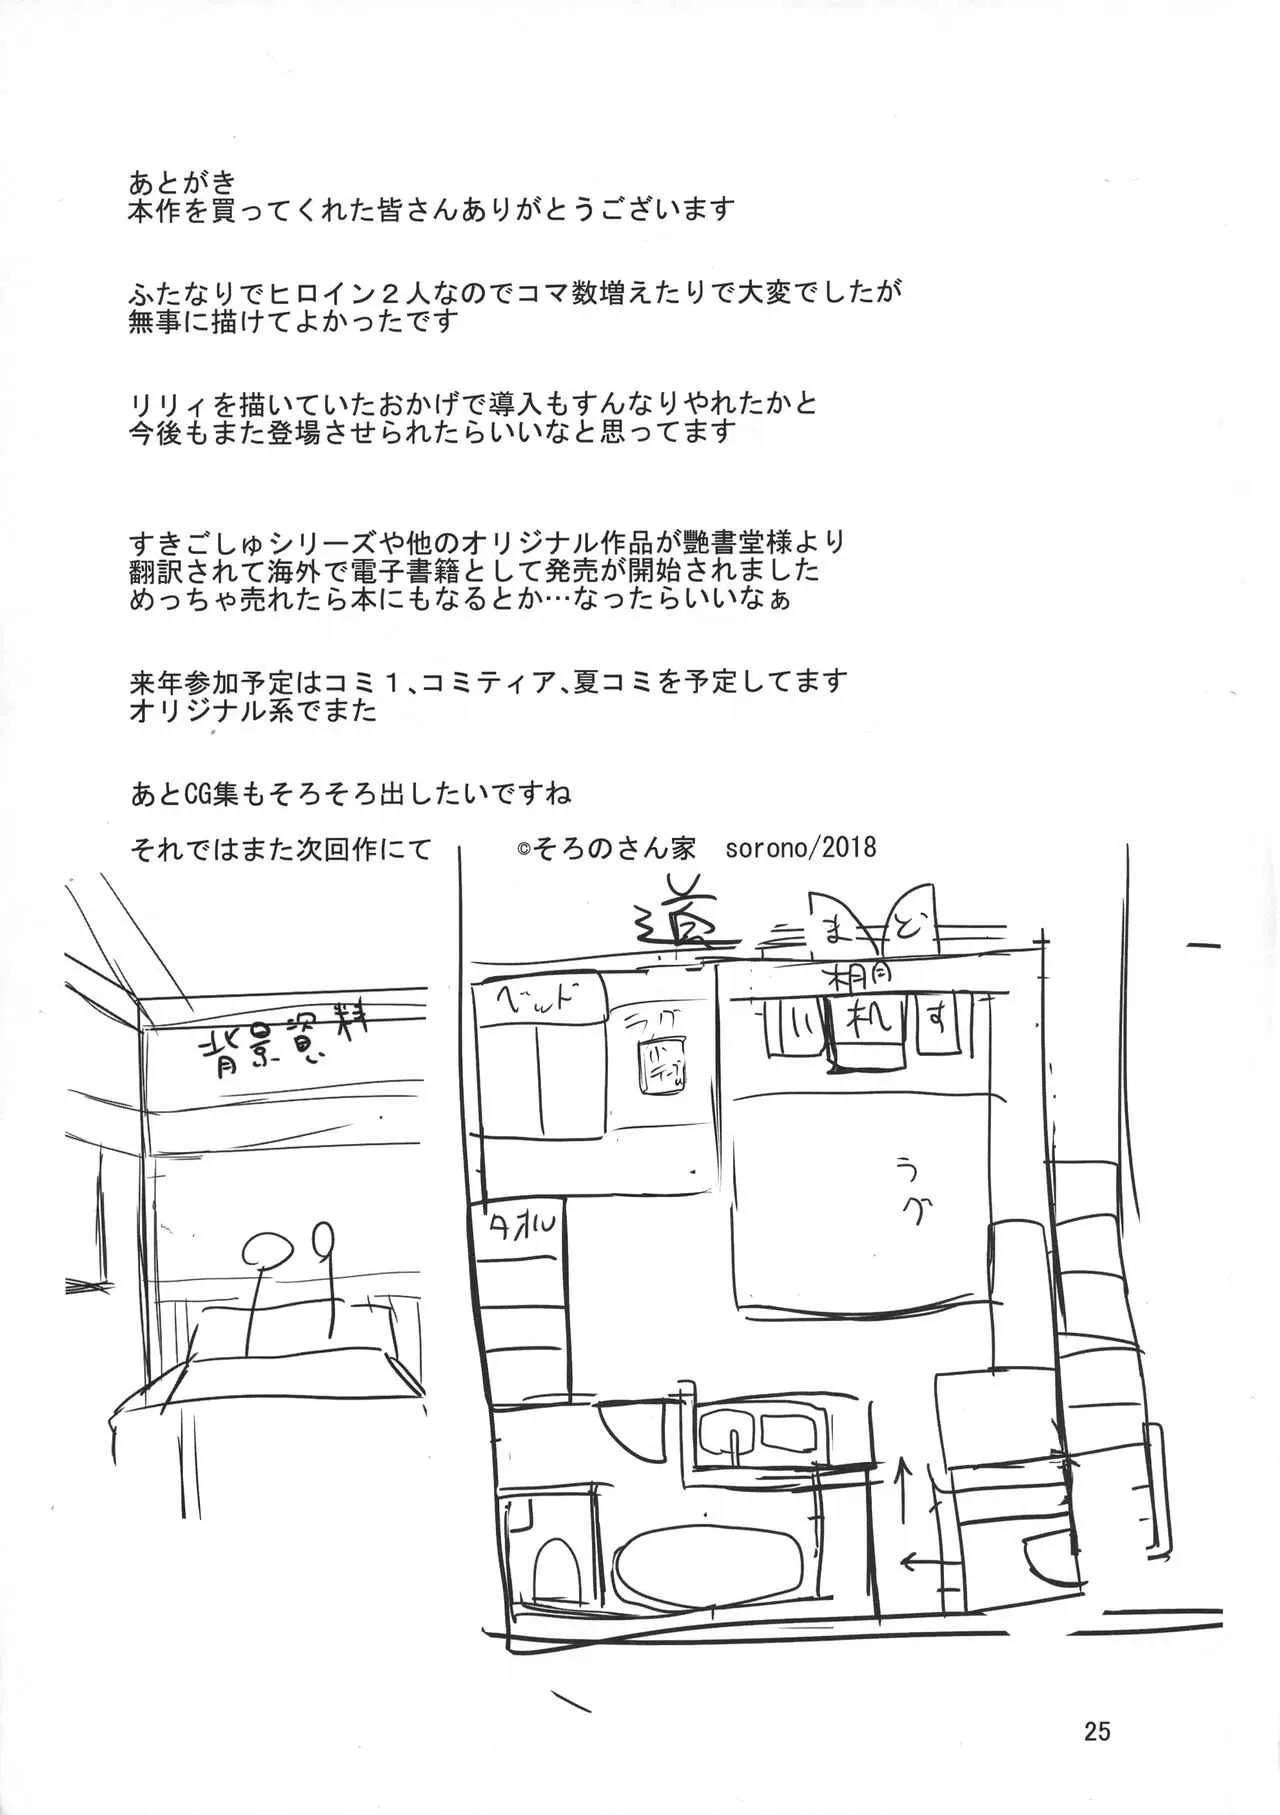 あとがき
本作を買ってくれた皆さんありがとうございます
ふたなりでヒロイン２人なのでコマ数増えたりで大変でしたが
無事に描けてよかったです
リリィを描いていたおかげで導入もすんなりやれたかと
今後もまた登場させられたらいいなと思ってます
すきごしゅシリーズや他のオリジナル作品が艶書堂様より
翻訳されて海外で電子書籍として発売が開始されました
めっちゃ売れたら本にもなるとか…なったらいいなぁ
来年参加予定はコミ１、コミティア、夏コミを予定してます
オリジナル系でまた
あとCG集もそろそろ出したいですね
それではまた次回作にて ©そろのさん家 sorono/2018
道
まど
棚
ベッド
ラグ
机
いす
背景資料
ラグ
タオル
25